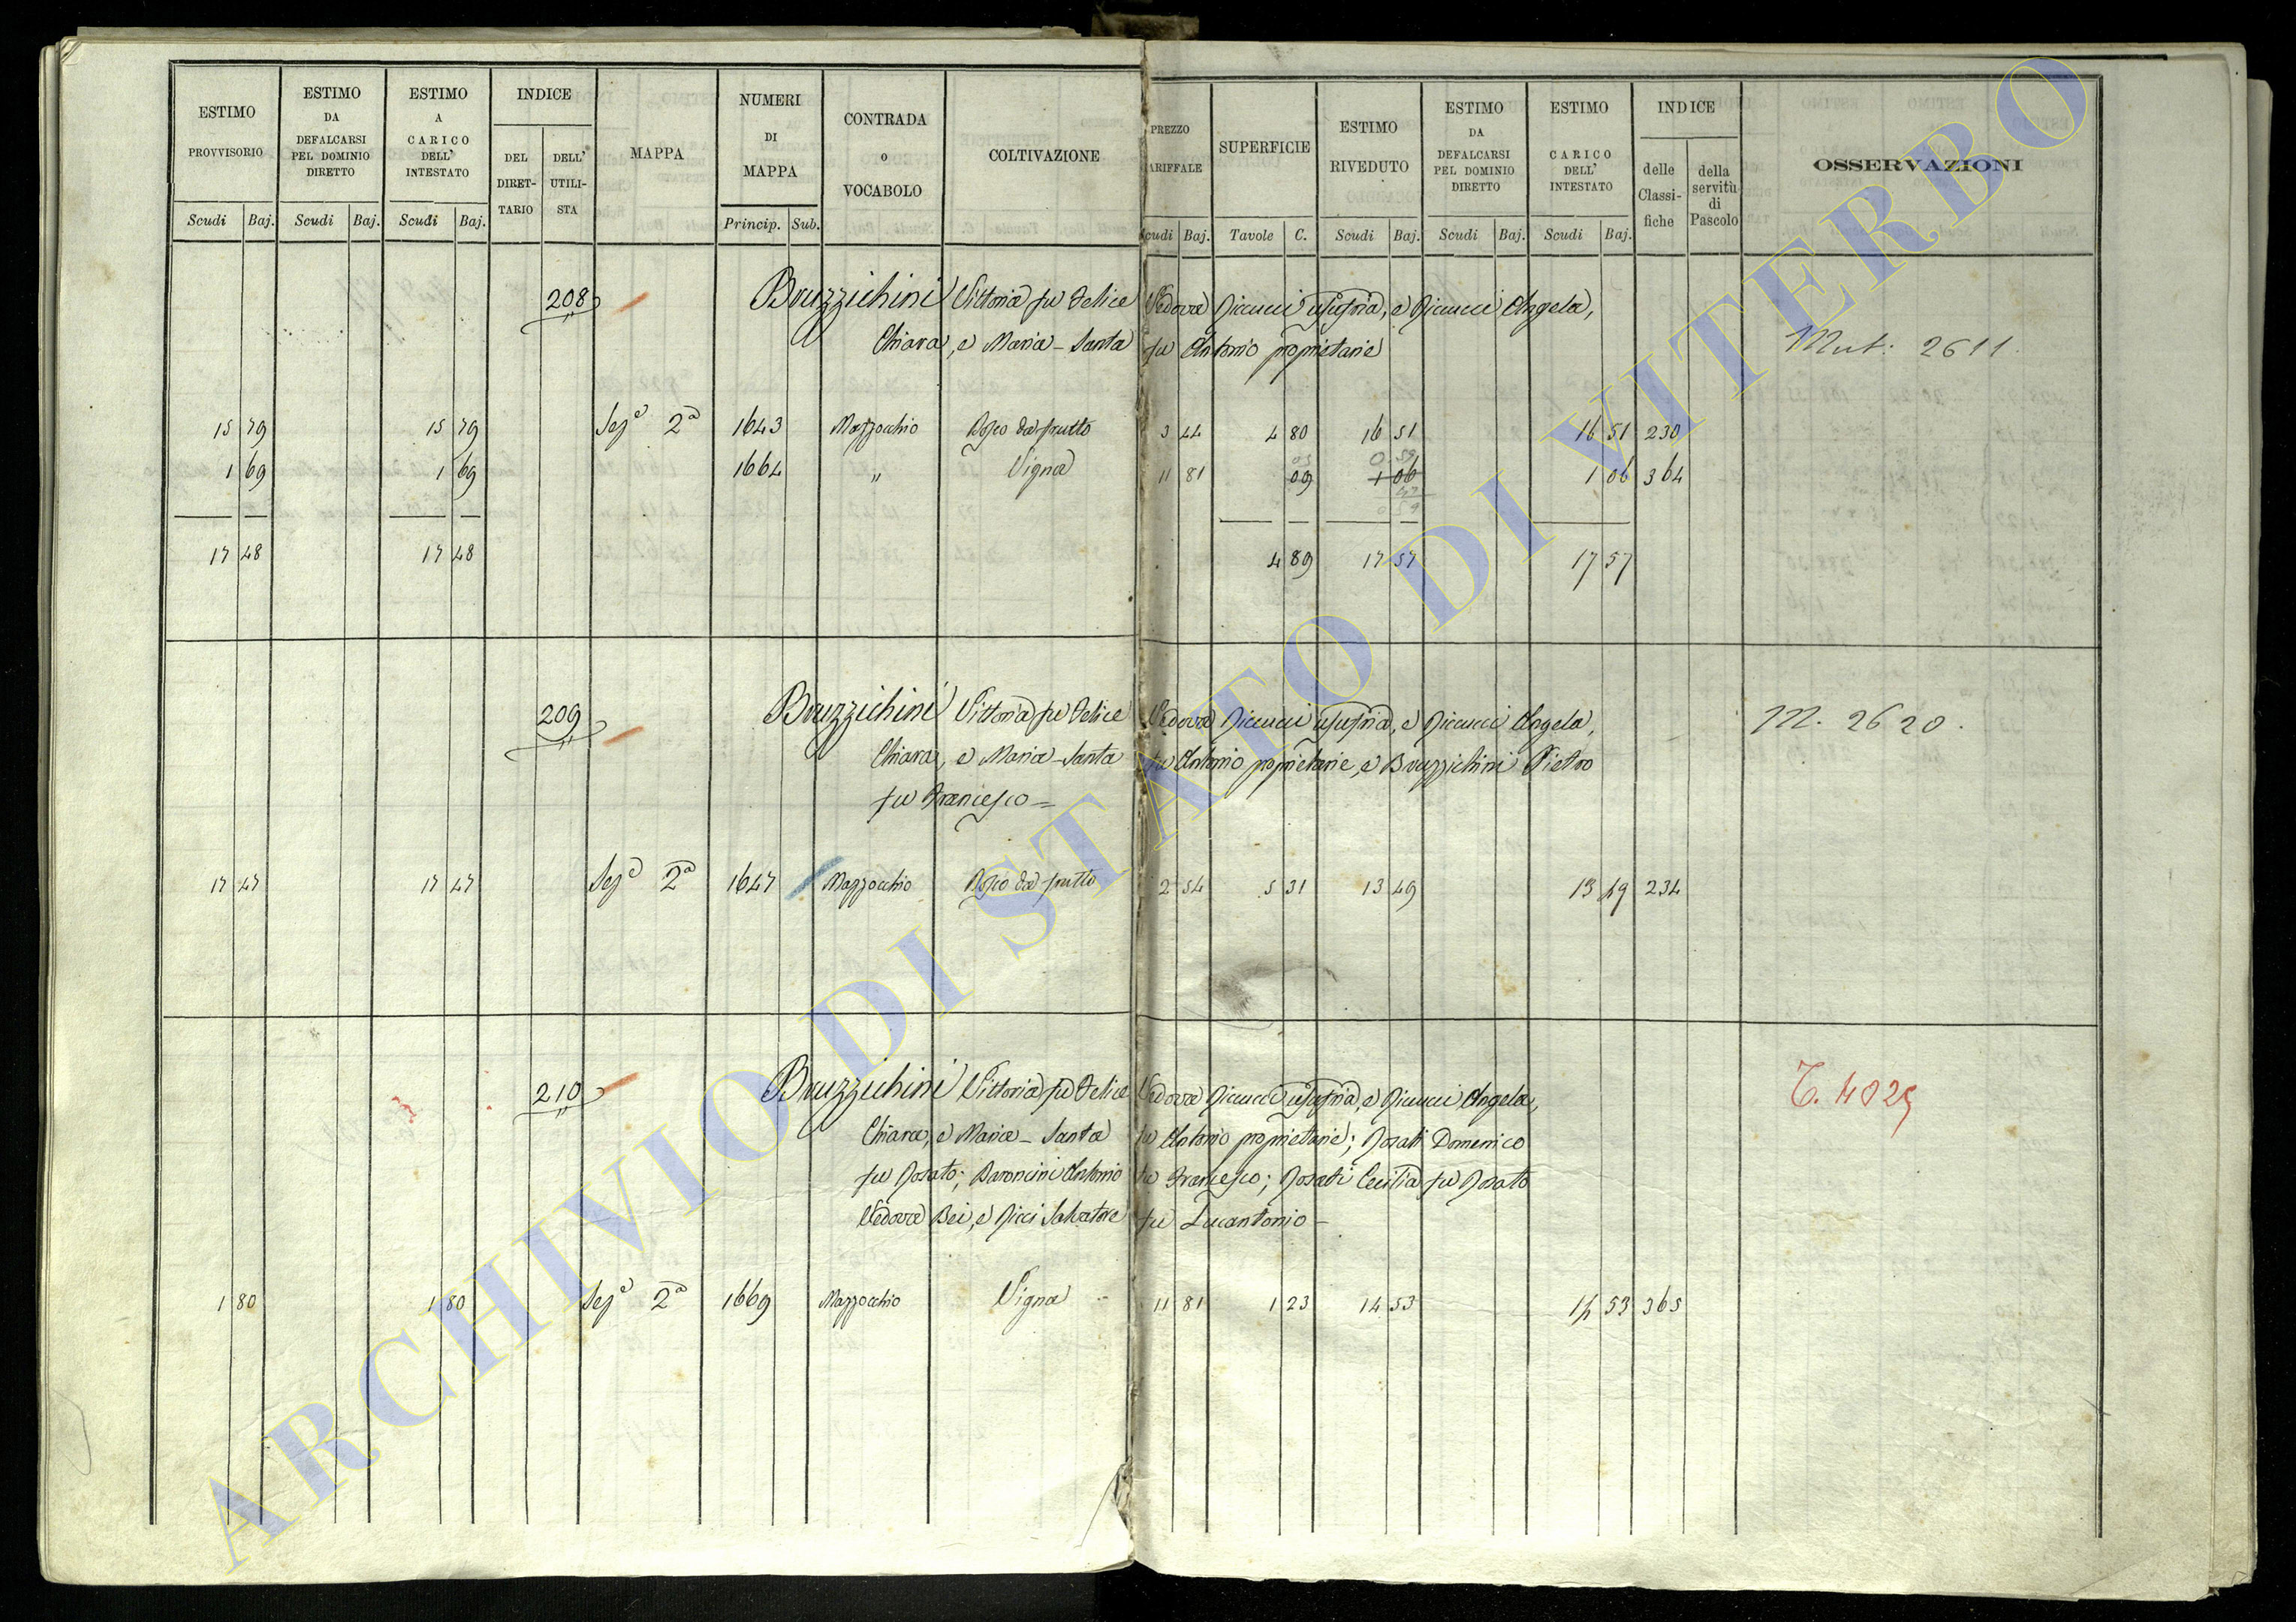 ESTIMO PROVVISORIO
Scudi Baj.
ESTIMO DA DEFALCARSI PEL DOMINIO DIRETTO
Scudi Baj.
ESTIMO A CARICO DELL' INTESTATO
Scudi Baj.
INDICE
DEL DIRET-TARIO
DELL' UTILI-STA
MAPPA
NUMERI DI MAPPA
Princip. Sub.
CONTRADA o VOCABOLO
COLTIVAZIONE
PREZZO ARIFFALE
cudi Baj.
SUPERFICIE
Tavole C.
ESTIMO RIVEDUTO
Scudi Baj.
ESTIMO DA DEFALCARSI PEL DOMINIO DIRETTO
Scudi Baj.
ESTIMO A CARICO DELL' INTESTATO
Scudi Baj.
INDICE
delle Classi-fiche
della servitù di Pascolo
OSSERVAZIONI
208 Bruzzichini Vittoria fu Felice Vedova Ricucci usufria, e Ricucci Angela,
Chiara, e Maria-Santa fu Antonio proprietarie
Mut: 2611.
15 79 15 79 Seze 2a 1643 Mazzocchio Bosco da frutto 3 44 4 80 16 51 16 51 230
1 69 1 69 1664 " Vigna 11 81 09 1 06 1 06 364
05 0.59
47
0 59
17 48 17 48 4 89 17 57 17 57
209 Bruzzichini Vittoria fu Felice Vedova Ricucci usufria, e Ricucci Angela,
Chiara, e Maria-Santa fu Antonio proprietarie, e Bruzzichini Pietro
fu Francesco =
M. 2620.
17 47 17 47 Seze 2a 1647 Mazzocchio Bosco da frutto 2 54 5 31 13 49 13 49 234
210 Bruzzichini Vittoria fu Felice Vedova Ricucci usufria, e Ricucci Angela,
Chiara, e Maria-Santa fu Antonio proprietarie; Rosati Domenico
fu Rosato; Baroncini Antonio fu Francesco; Rosati Cecilia fu Rosato
Vedova Bei, e Ricci Salvatore fu Lucantonio -
T. 4025
1 80 1 80 Seze 2a 1669 Mazzocchio Vigna 11 81 1 23 14 53 14 53 365
ARCHIVIO DI STATO DI VITERBO